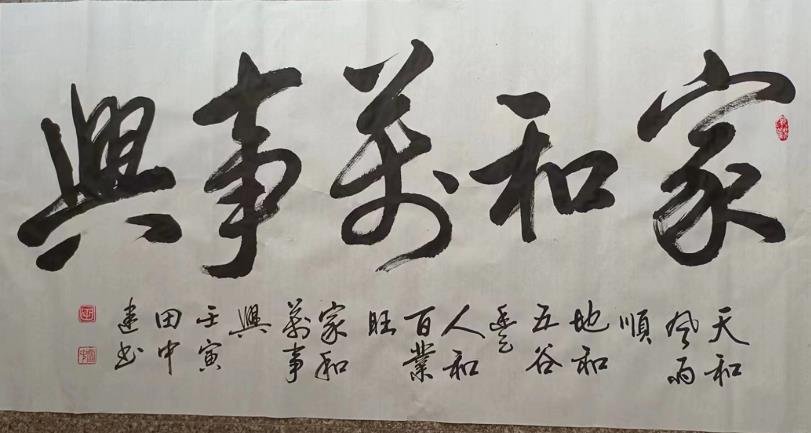 家和萬事興
天和
風雨
順
地和
五谷
豐
人和
百業
旺
家和
萬事
興
壬寅
田中
建書